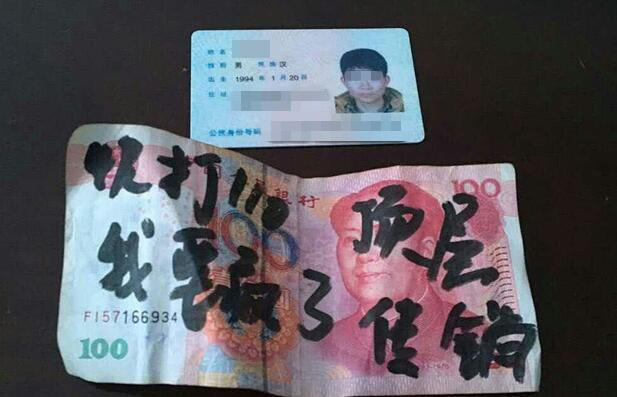 姓名
性别 男 民族 汉
出生 1994 年 1 月 20 日
住址
公民身份号码
快打110 顶层
我要疯了 传销
100
FI57166934
100